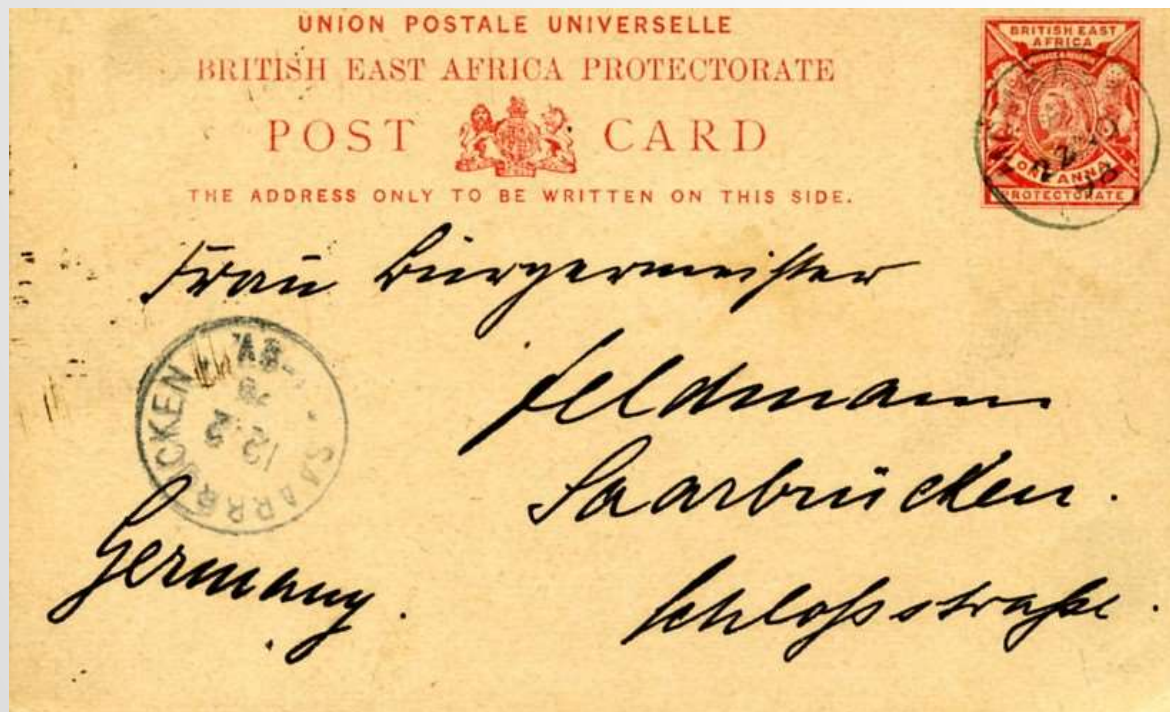 UNION POSTALE UNIVERSELLE
BRITISH EAST AFRICA PROTECTORATE
POST CARD
THE ADDRESS ONLY TO BE WRITTEN ON THIS SIDE.
BRITISH EAST
AFRICA
ONE ANNA
PROTECTORATE
Frau Bürgermeister
Feldmann
Saarbrücken.
Schloßstraße.
Germany.
SAARBRÜCKEN
12.2